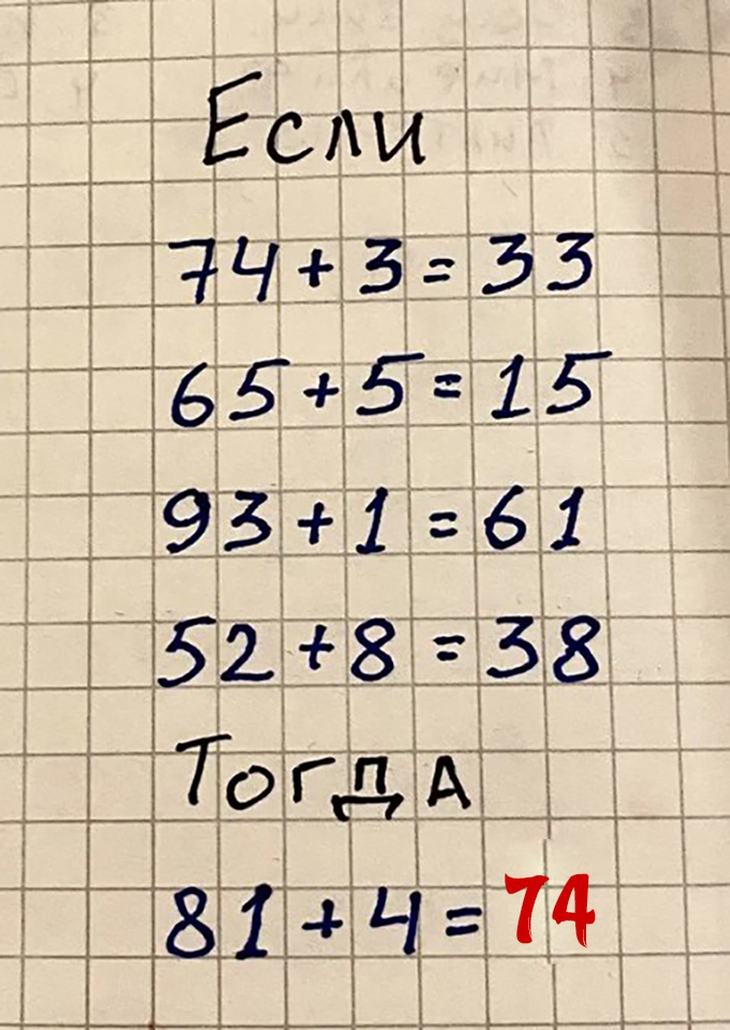 Если
74+3=33
65+5=15
93+1=61
52+8=38
Тогда
81+4=74